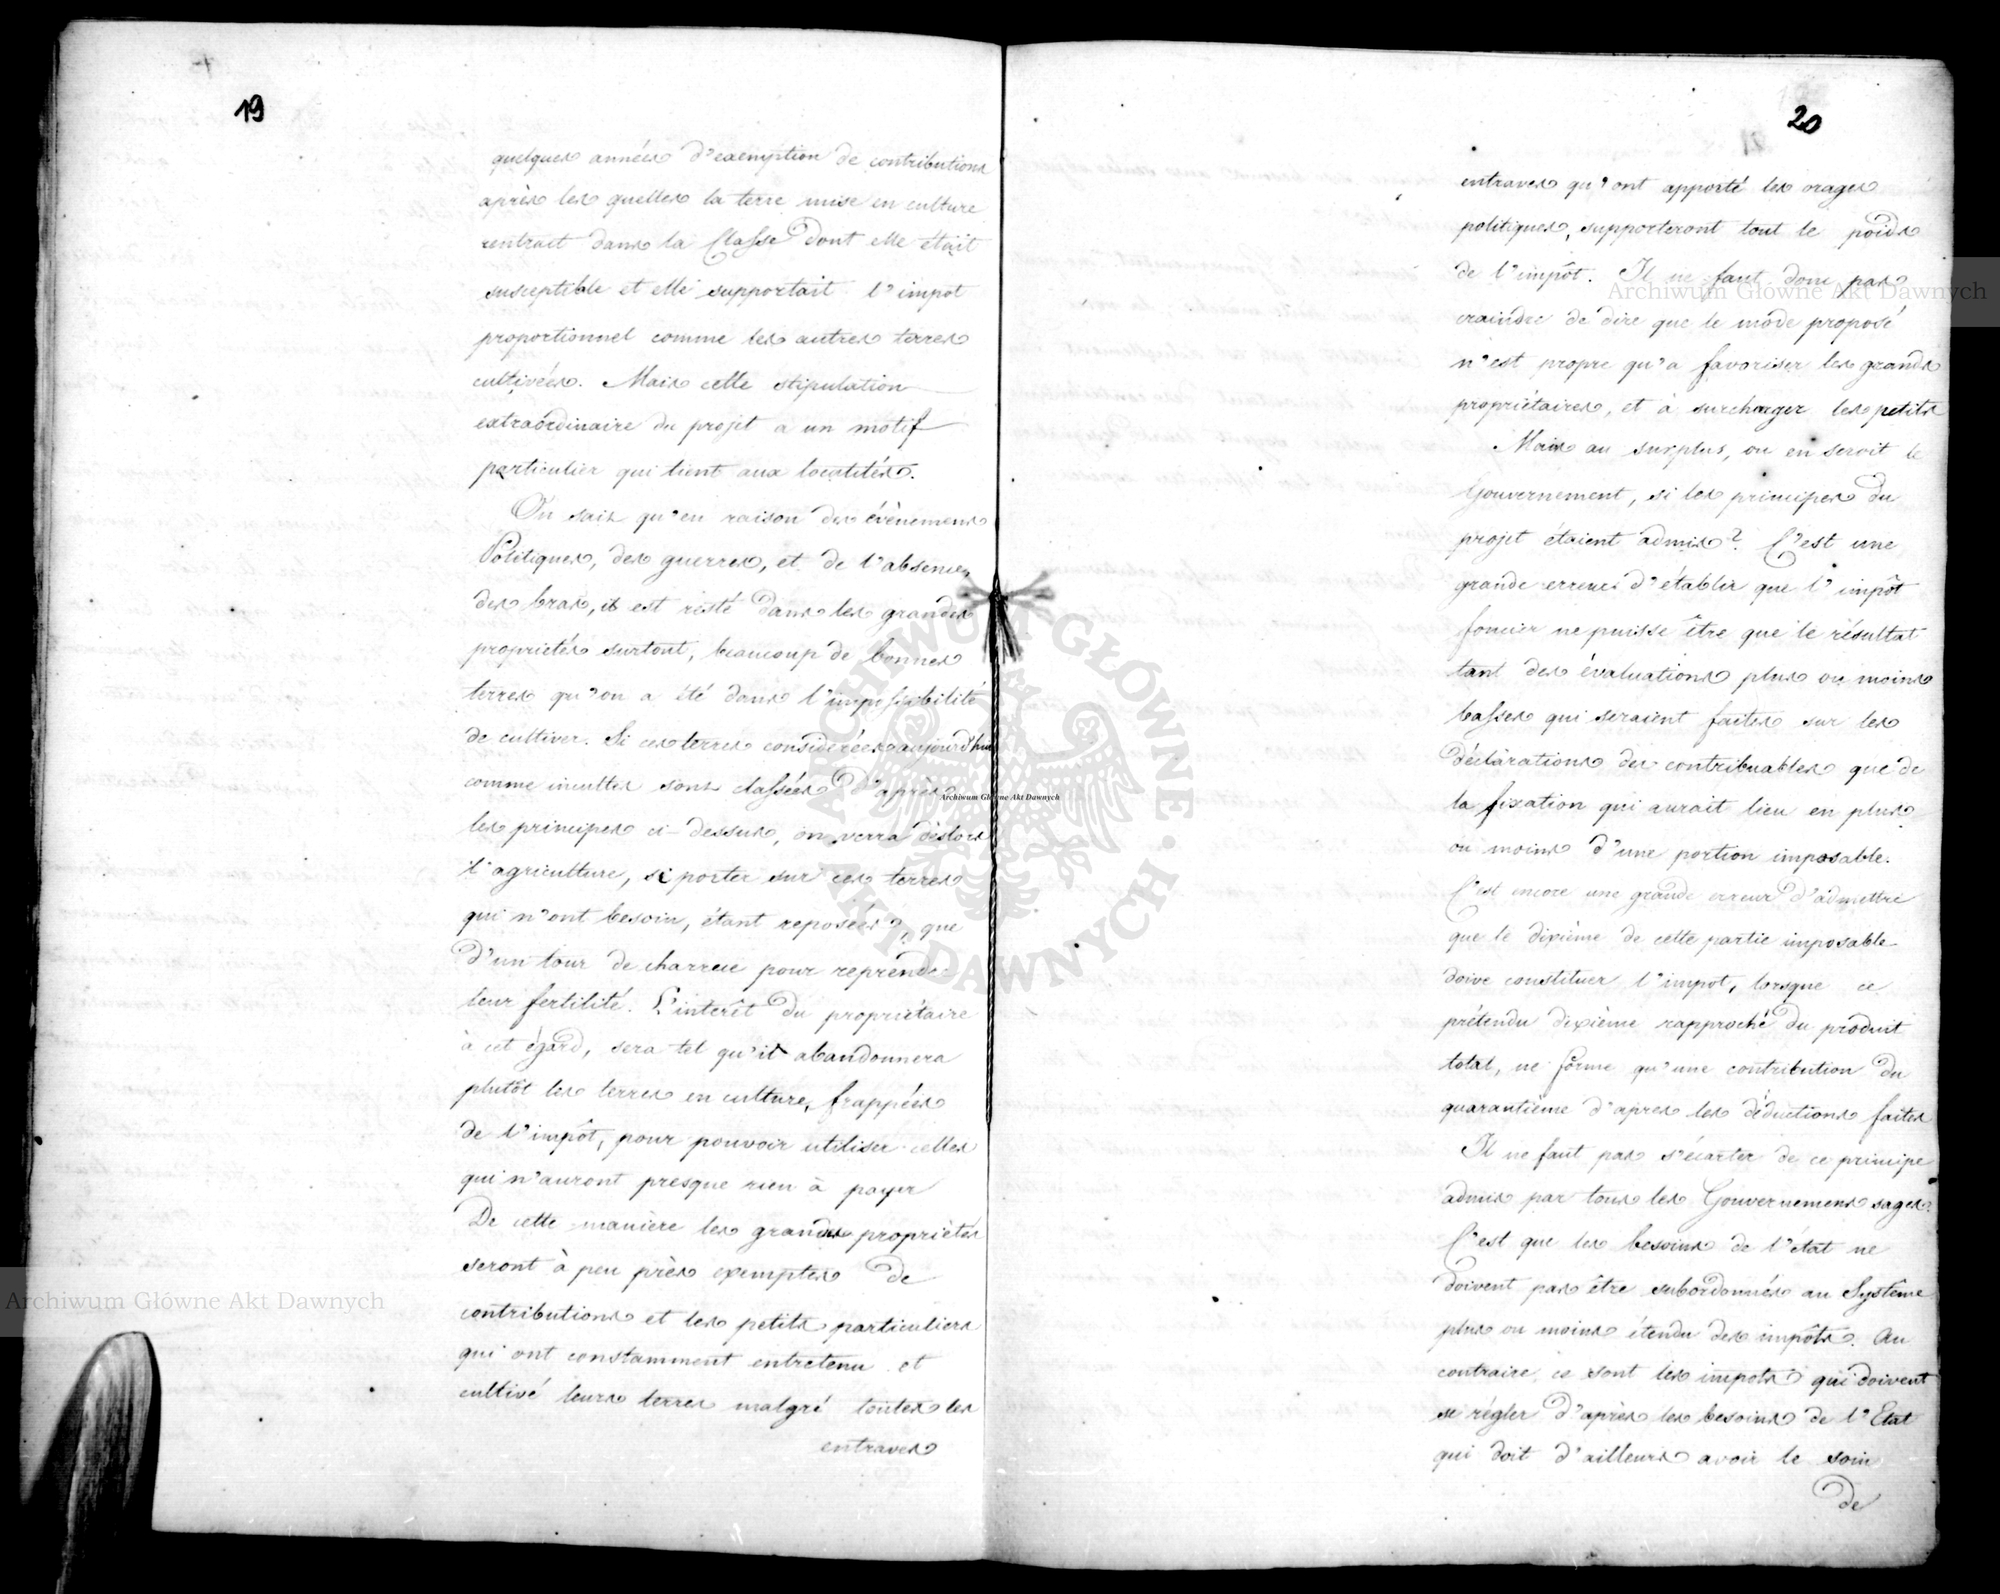 19
quelques années d'exemption de contributions
après les quelles la terre mise en culture
rentrait dans la Classe dont elle était
susceptible et elle supportait l'impot
proportionnel comme les autres terres
cultivées. Mais cette stipulation
extraordinaire du projet a un motif
particulier qui tient aux localités.
On sait qu'en raison des évènemens
Politiques, des guerres, et de l'absence
des bras, il est resté dans les grandes
propriétés surtout, beaucoup de bonnes
terres qu'on a été dans l'impossibilité
de cultiver. Si ces terres considerées aujourd'hui
comme incultes sont classées d'après
les principes ci-dessus, on verra dèslors
l'agriculture, se porter sur ces terres
qui n'ont besoin, étant reposées, que
d'un tour de charrue pour reprendre
leur fertilité. L'interêt du propriétaire
à cet égard, sera tel qu'il abandonnera
plutôt les terres en culture, frappées
de l'impôt, pour pouvoir utiliser celles
qui n'auront presque rien à payer
De cette manière les grandes propriétés
seront à peu près exemptes de
contributions et les petits particuliers
qui ont constamment entretenu et
cultivé leurs terres malgré toutes les
entraves
20
entraves qu'ont apporté les orages
politiques, supporteront tout le poids
de l'impôt. Il ne faut donc pas
craindre de dire que le mode proposé
n'est propre qu'a favoriser les grands
propriétaires, et à surcharger les petits
Mais au surplus, ou en seroit le
Gouvernement, si les principes du
projet étaient admis? C'est une
grande erreur d'établir que l'impôt
foncier ne puisse être que le résultat
tant des évaluations plus ou moins
basses qui seraient faites sur les
déclarations des contribuables que de
la fixation qui aurait lieu en plus
ou moins d'une portion imposable.
C'est encore une grande erreur d'admettre
que le dixième de cette partie imposable
doive constituer l'impot, lorsque ce
prétendu dixième rapproché du produit
total, ne forme qu'une contribution du
quarantième d'apres les déductions faites
Il ne faut pas s'écarter de ce principe
admis par tous les Gouvernemens sages.
C'est que les besoins de l'état ne
doivent pas être subordonnés au Système
plus ou moins étendu des impôts. Au
contraire, ce sont les impots qui doivent
se régler d'après les besoins de l'Etat
qui doit d'ailleurs avoir le soin
de
Archiwum Główne Akt Dawnych
Archiwum Główne Akt Dawnych
Archiwum Główne Akt Dawnych
ARCHIWUM GŁÓWNE AKT DAWNYCH